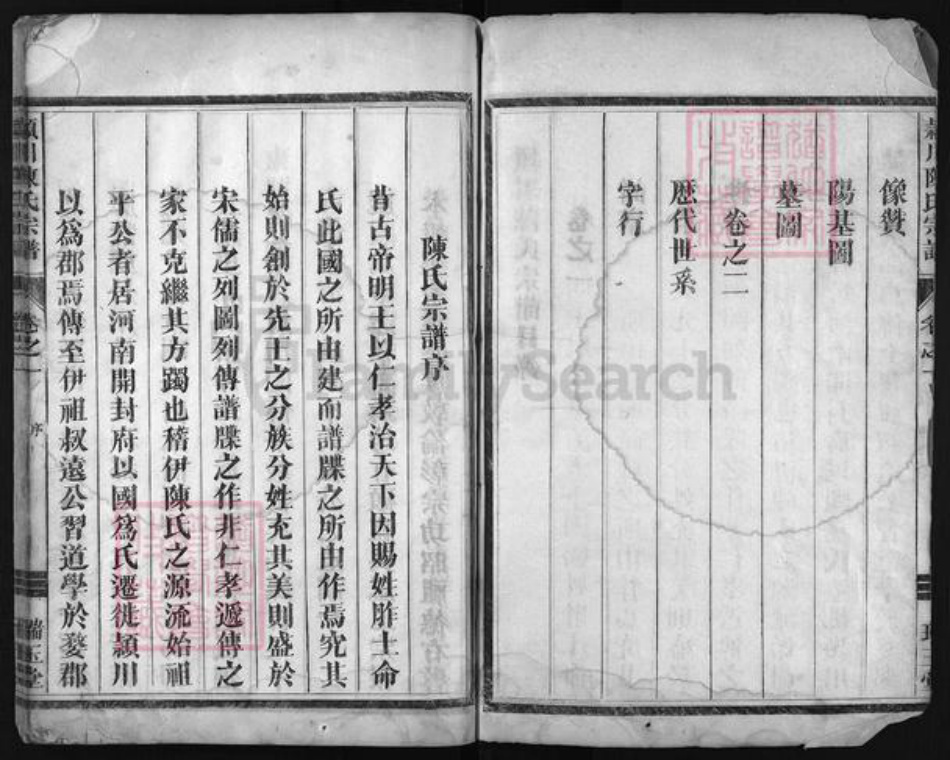 像贊
陽基圖
墓圖
卷之二
歷代世系
字行
陳氏宗譜序
昔古帝明王以仁孝治天下因賜姓胙土命
氏此國之所由建而譜牒之所由作焉究其
始則創於先王之分族分姓充其美則盛於
宋儒之列圖列傳譜牒之作非仁孝遞傳之
家不克繼其方躅也稽伊陳氏之源流始祖
平公者居河南開封府以國爲氏遷徙潁川
以爲郡焉傳至伊祖叔遠公習道學於婺郡
潁川陳氏宗譜
卷之一
序
瑞玉堂
FamilySearch